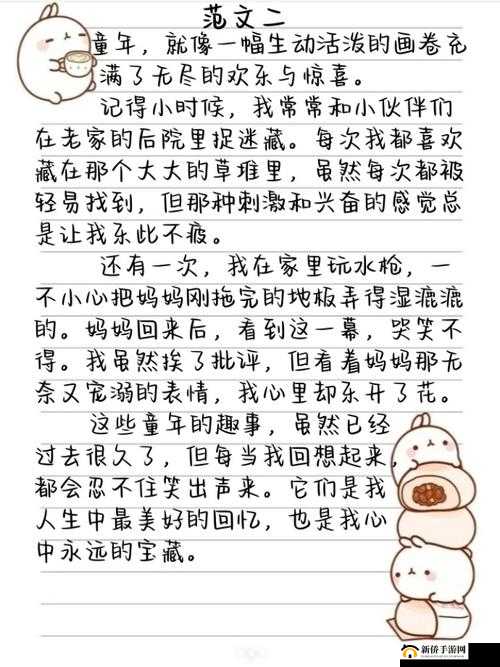 范文二
童年，就像一幅生动活泼的画卷充
满了无尽的欢乐与惊喜。
记得小时候，我常常和小伙伴们
在老家的后院里捉迷藏。每次我都喜欢
藏在那个大大的草堆里，虽然每次都被
轻易找到，但那种刺激和兴奋的感觉总
是让我乐此不疲。
还有一次，我在家里玩水枪，一
不小心把妈妈刚拖完的地板弄得湿漉漉
的。妈妈回来后，看到这一幕，哭笑不
得。我虽然挨了批评，但看着妈妈那无
奈又宠溺的表情，我心里却乐开了花。
这些童年的趣事，虽然已经
过去很久了，但每当我回想起来，
都会忍不住笑出声来。它们是我
人生中最美好的回忆，也是我心
中永远的宝藏。
新侨手游网